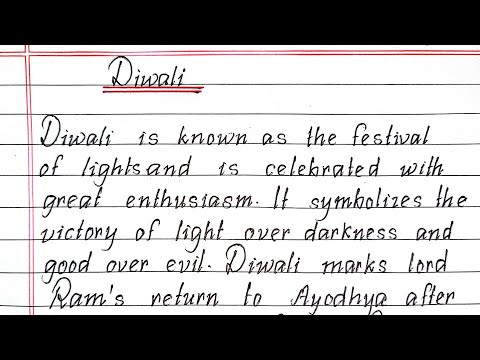 Diwali
Diwali is known as the festival
of lights and is celebrated with
great enthusiasm. It symbolizes the
victory of light over darkness and
good over evil. Diwali marks lord
Ram's return to Ayodhya after